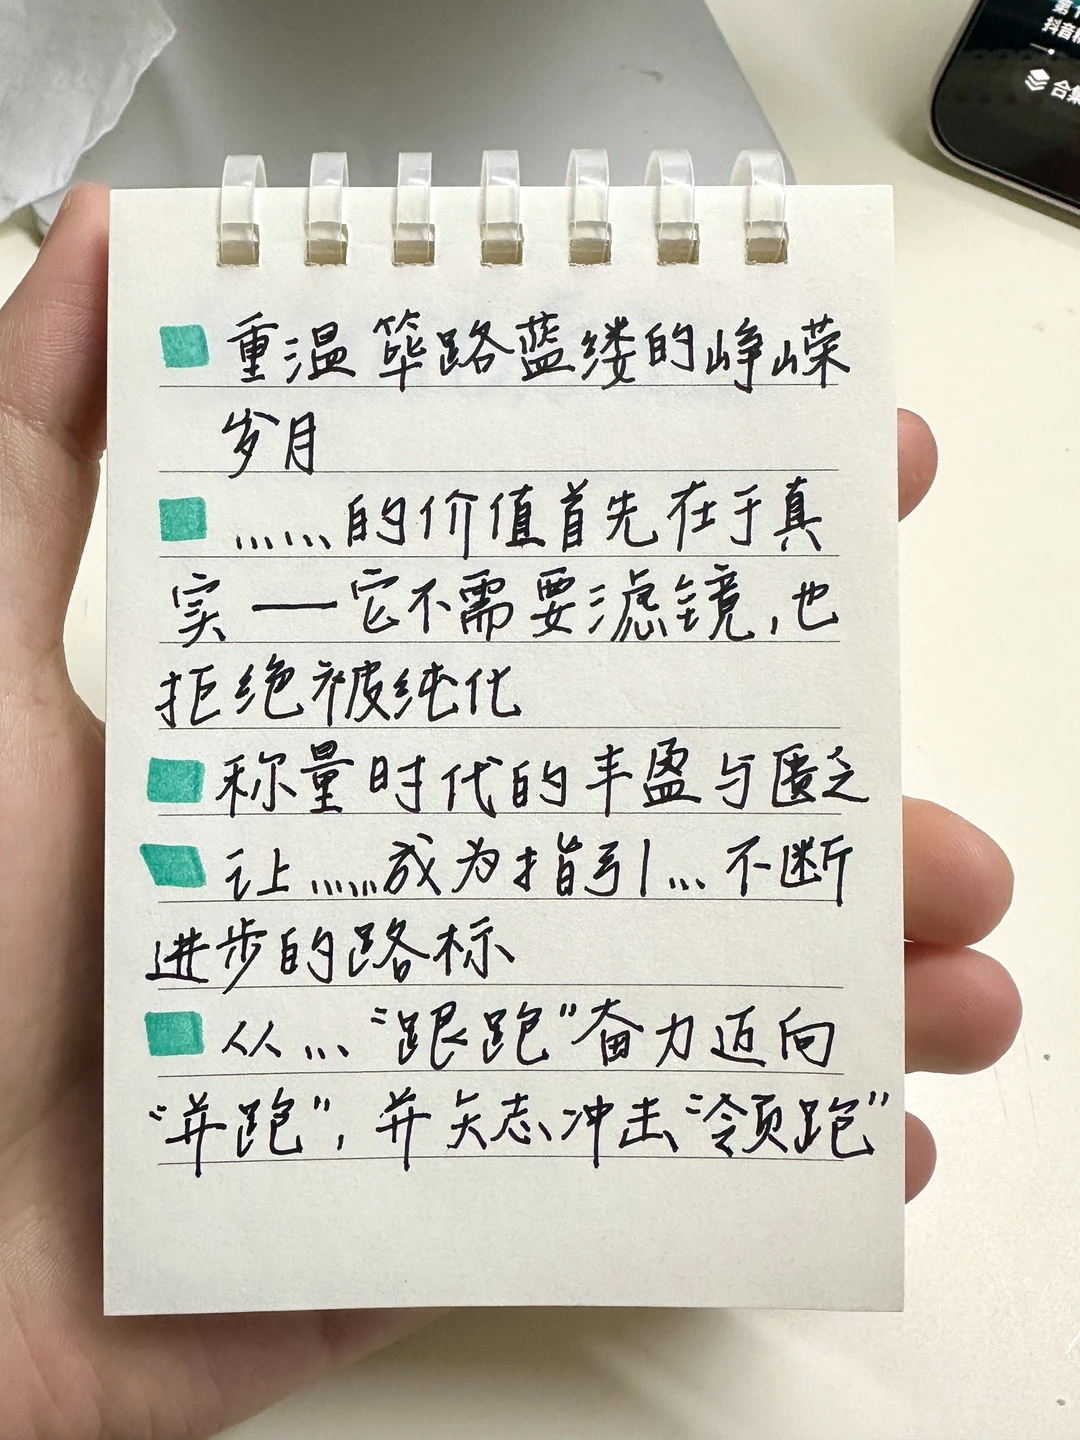 第
抖音
合集
重温筚路蓝缕的峥嵘
岁月
……的价值首先在于真
实——它不需要滤镜,也
拒绝被纯化
称量时代的丰盈与匮乏
让……成为指引…不断
进步的路标
从…“跟跑”奋力迈向
“并跑”,并矢志冲击“领跑”